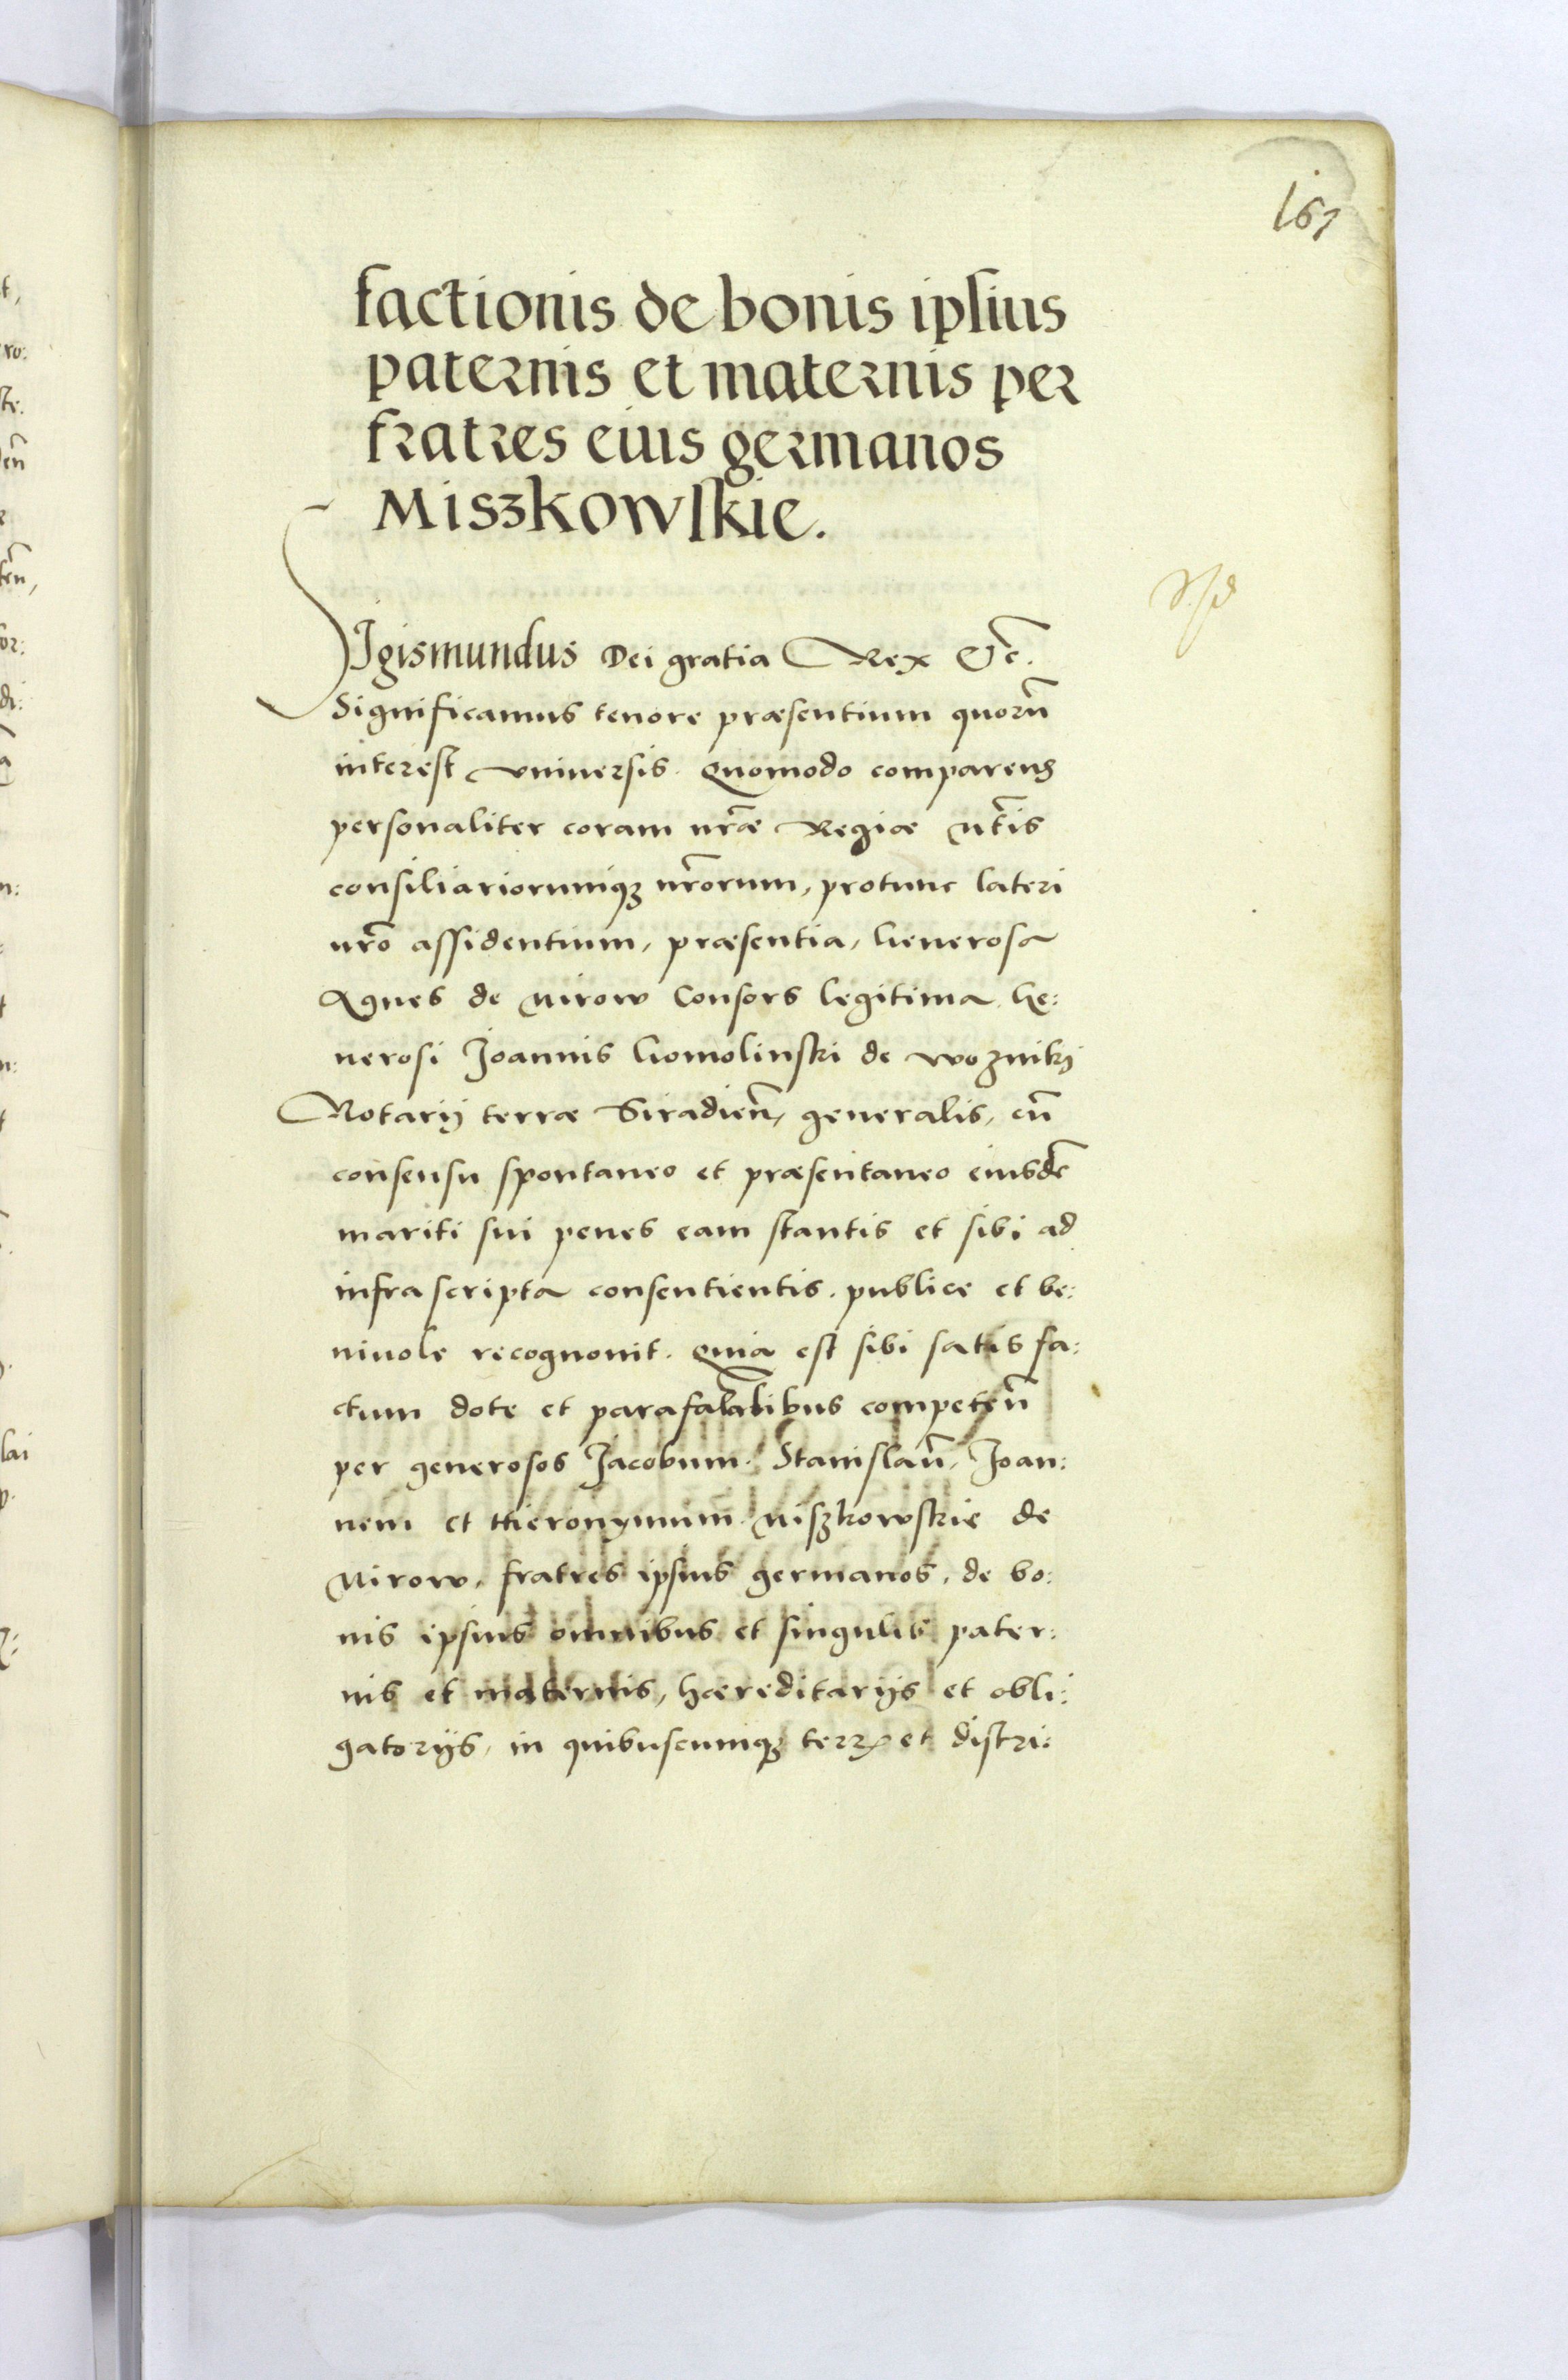 167
factionis de bonis ipsius
paternis et maternis per
fratres eius germanos
Miszkowskie.
Sigismundus Dei gratia Rex Etc̃.
Significamus tenore præsentium quorũ
interest vniuersis. Quomodo comparens
personaliter coram nr̃æ Regiæ Mt̃is
consiliariorumqꝫ nr̃orum, protunc lateri
nr̃o assidentium, præsentia, Generosa
Agnes de Mirow Consors legitima Ge:
nerosi Joannis Gomolinski de Wozniki
Notarij terræ Siradieñ, generalis, cũ
consensu spontaneo et præsentaneo eiusdẽ
mariti sui penes eam stantis et sibi ad
infrascripta consentientis. publice et be:
niuole recognouit. Quia est sibi satis fa:
ctum dote et parafalalibus competeñ
per generosos Jacobum. Stanislaũ, Joan:
nem et Hieronymum Miszkowskie de
Mirow, fratres ipsius germanos, de bo:
nis ipsius omnibus et singulis pater:
nis et maternis, hæreditarijs et obli:
gatorijs, in quibuscumqꝫ terrꝭ et distri: